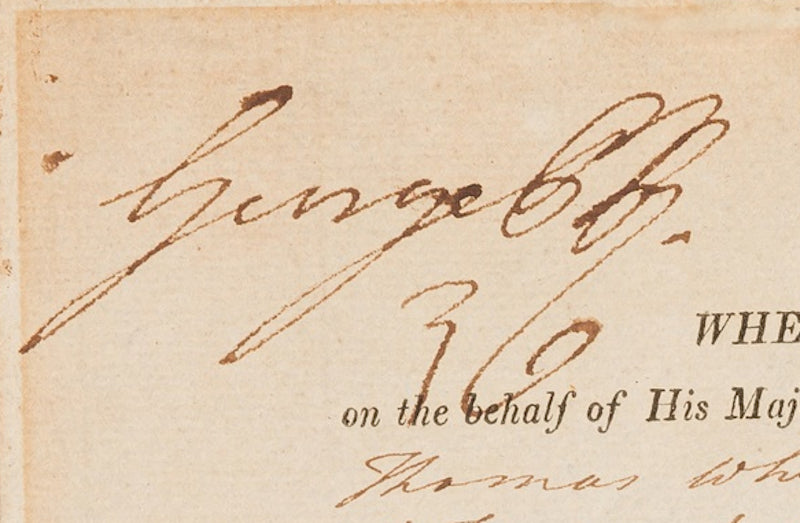 George PR
WHE
on the behalf of His Maj
Thomas Wh